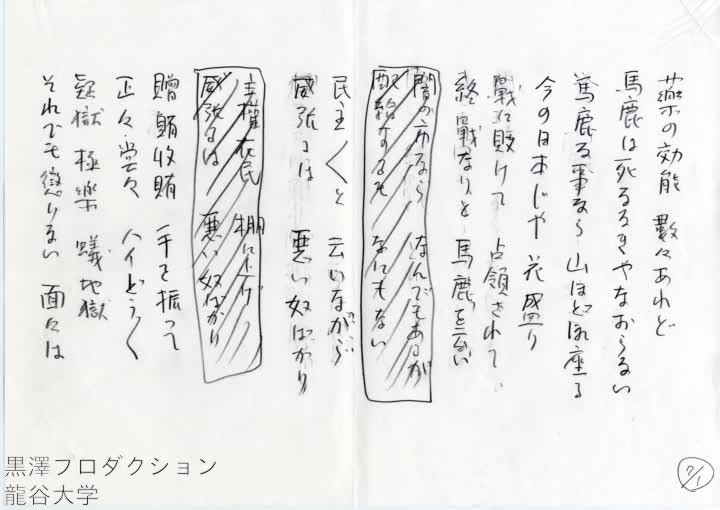 薬の効能 数々あれど
馬鹿は死ななきやなおらない
馬鹿な事なら 山ほど御座る
今の日本じや 花盛り
戦に敗けて 占領されて
終戦なりと 馬鹿を云い
闇の市なら なんでもあるが
配給するもの なにもない
民主〱と 云いながら
威張るは 悪い奴ばかり
主権在民 棚に上げ
威張るは 悪い奴ばかり
贈賄收賄 手を振って
正々堂々 ハイどう〱
疑獄 極楽 蟻地獄
それでも懲りない 面々は
7/1
黒澤プロダクション
龍谷大学